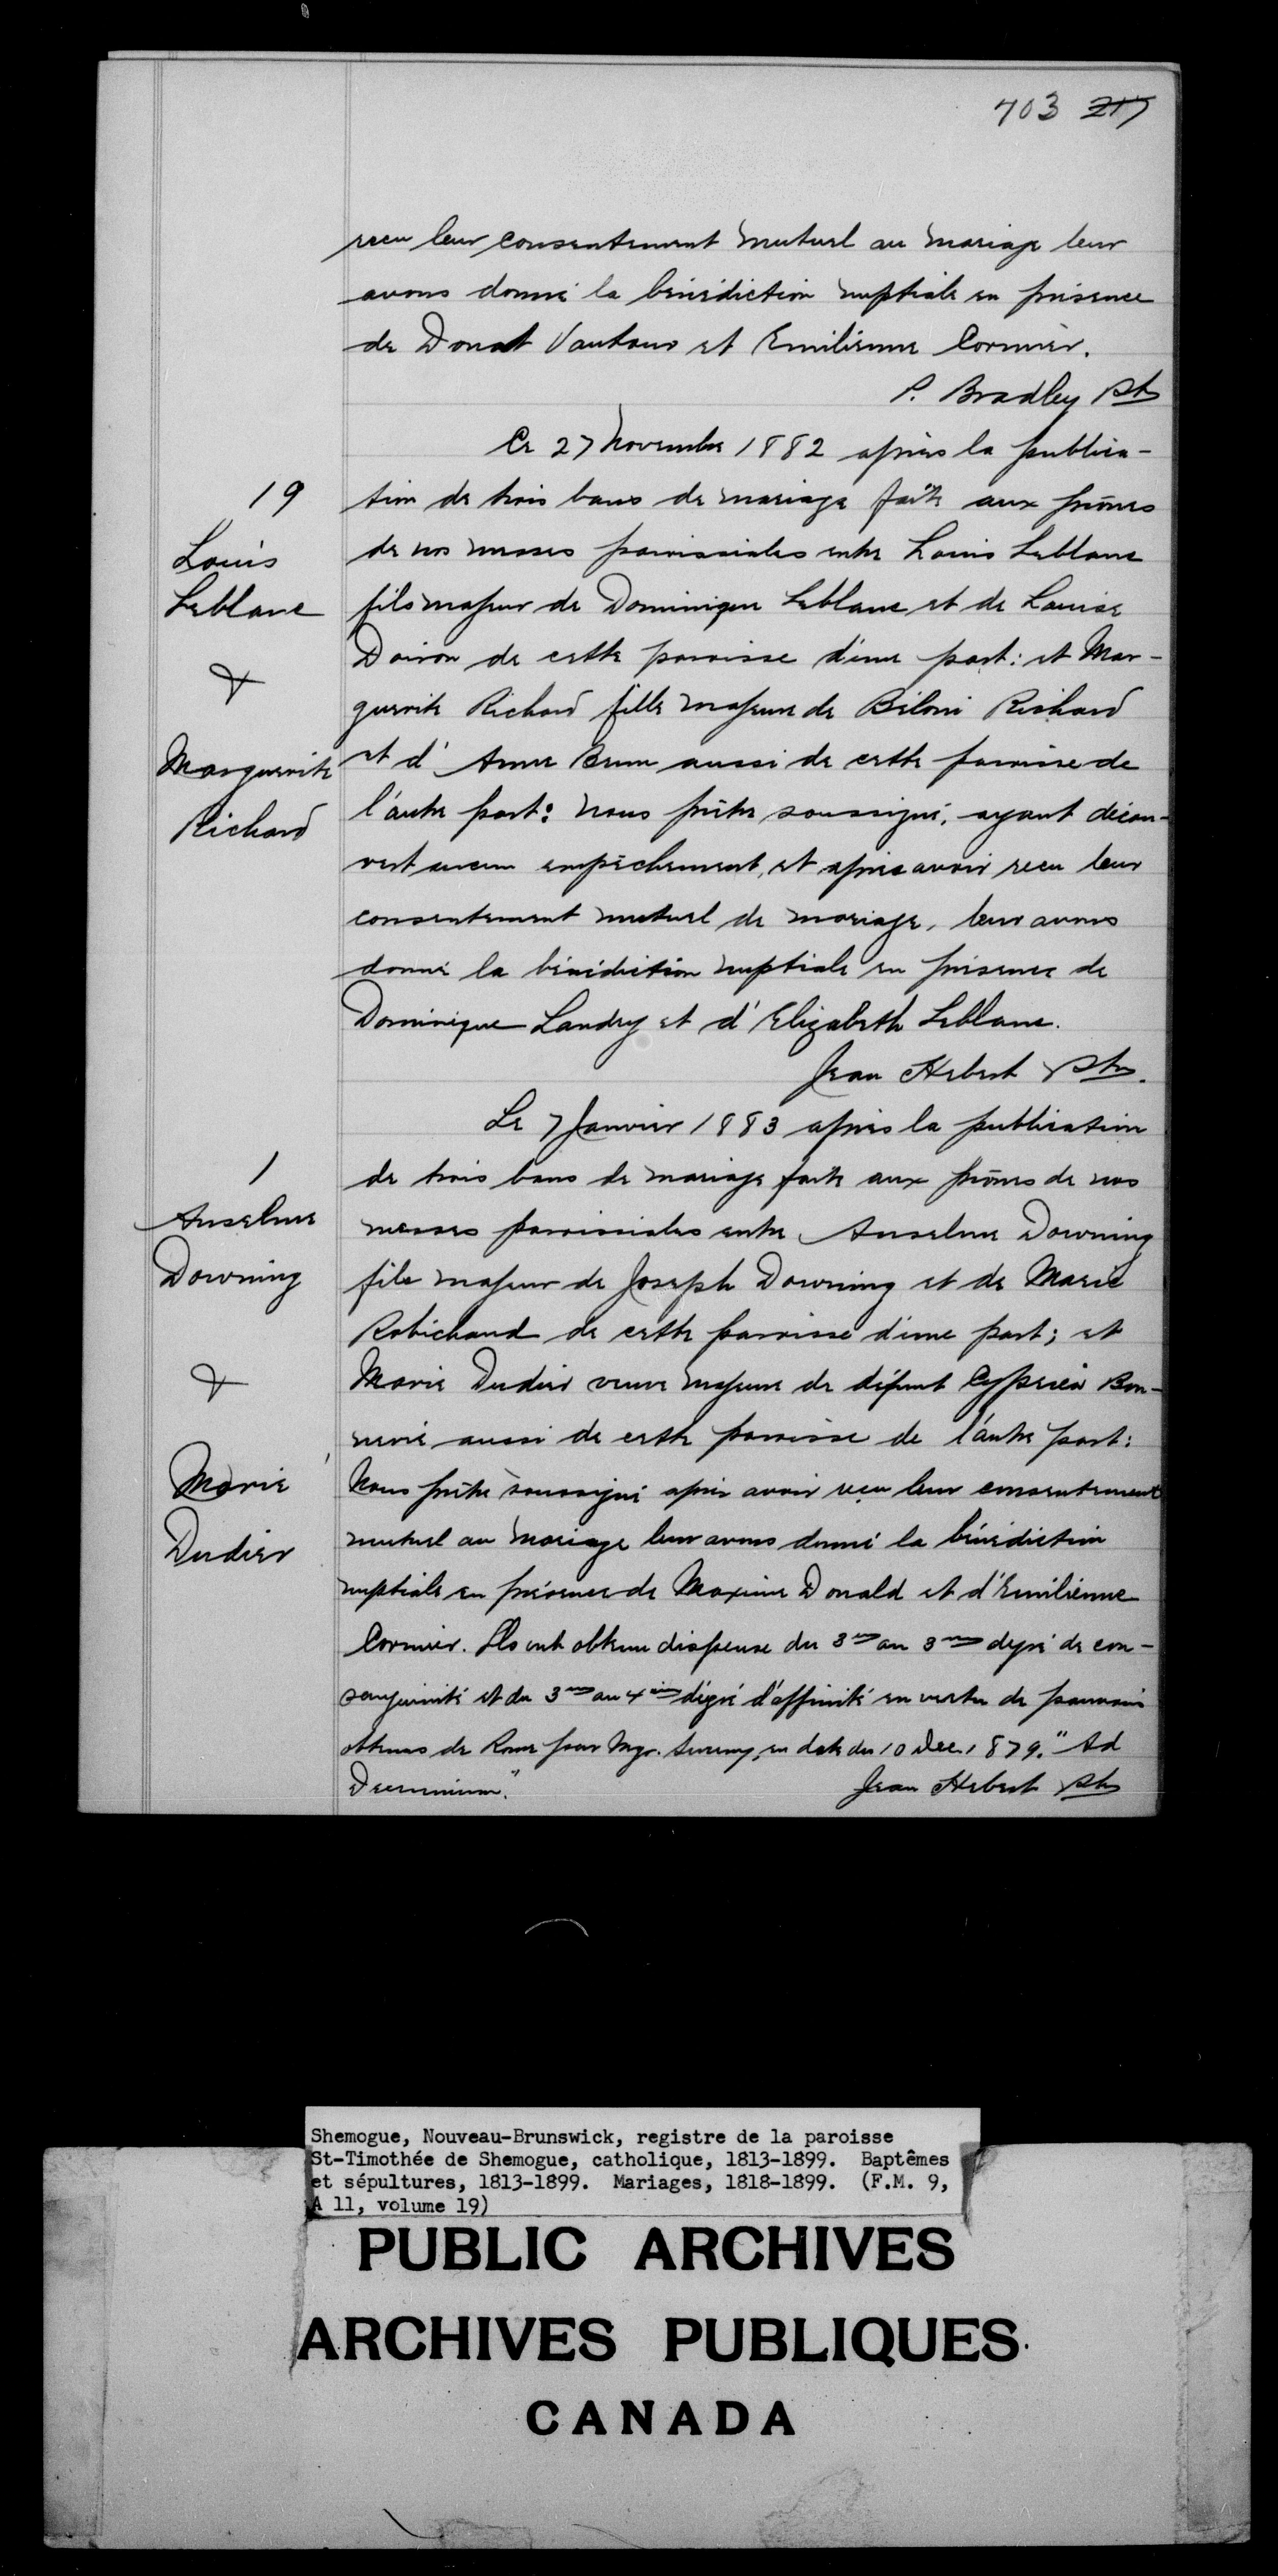 703 217
recu leur consentement mutuel au mariage leur
avons donné la bénédiction nuptiale en présence
de Donat Vautour et Emilienne Cormier.
P. Bradley Ptre
Ce 27 Novembre 1882 après la publica-
19
tion de trois bans de mariage faite aux prônes
de nos messes paroissiales entre Louis Leblanc
Louis
Leblanc
fils majeur de Dominique Leblanc et de Louise
Doiron de cette paroisse d'une part: et Mar-
&
guerite Richard fille majeure de Béloni Richard
et d' Anne Brun aussi de cette paroisse de
Marguerite
Richard
l'autre part: nous prêtre soussigné, ayant décou-
vert aucun empêchement, et après avoir recu leur
consentement mutuel de mariage, leur avons
donné la bénédiction nuptiale en présence de
Dominique Landry et d' Elizabeth Leblanc.
Jean Hebert Ptre.
Le 7 Janvier 1883 après la publication
1
de trois bans de mariage faite aux prônes de nos
Anselme
Downing
messes paroissiales entre Anselme Downing
fils majeur de Joseph Downing et de Marie
Robichaud de cette paroisse d'une part; et
&
Marie Dudier veuve majeure de défunt Cyprien Bon-
nevie aussi de cette paroisse de l'autre part:
Marie
Dudier
Nous prêtre soussigné après avoir reçu leur consentement
mutuel au mariage leur avons donné la bénédiction
nuptiale en présence de Maxime Donald et d'Emilienne
Cormier. Ils ont obtenu dispense du 3me au 3me degré de con-
sanguinité et du 3me au 4ième dégré d'affinité en vertu de pouvoirs
obtenus de Rome par Mgr. Sweeny, en date du 10 Dec. 1879. "Ad
Decennium."
Jean Hebert Ptre
Shemogue, Nouveau-Brunswick, registre de la paroisse
St-Timothée de Shemogue, catholique, 1813-1899. Baptêmes
et sépultures, 1813-1899. Mariages, 1818-1899. (F.M. 9,
A 11, volume 19)
PUBLIC ARCHIVES
ARCHIVES PUBLIQUES
CANADA